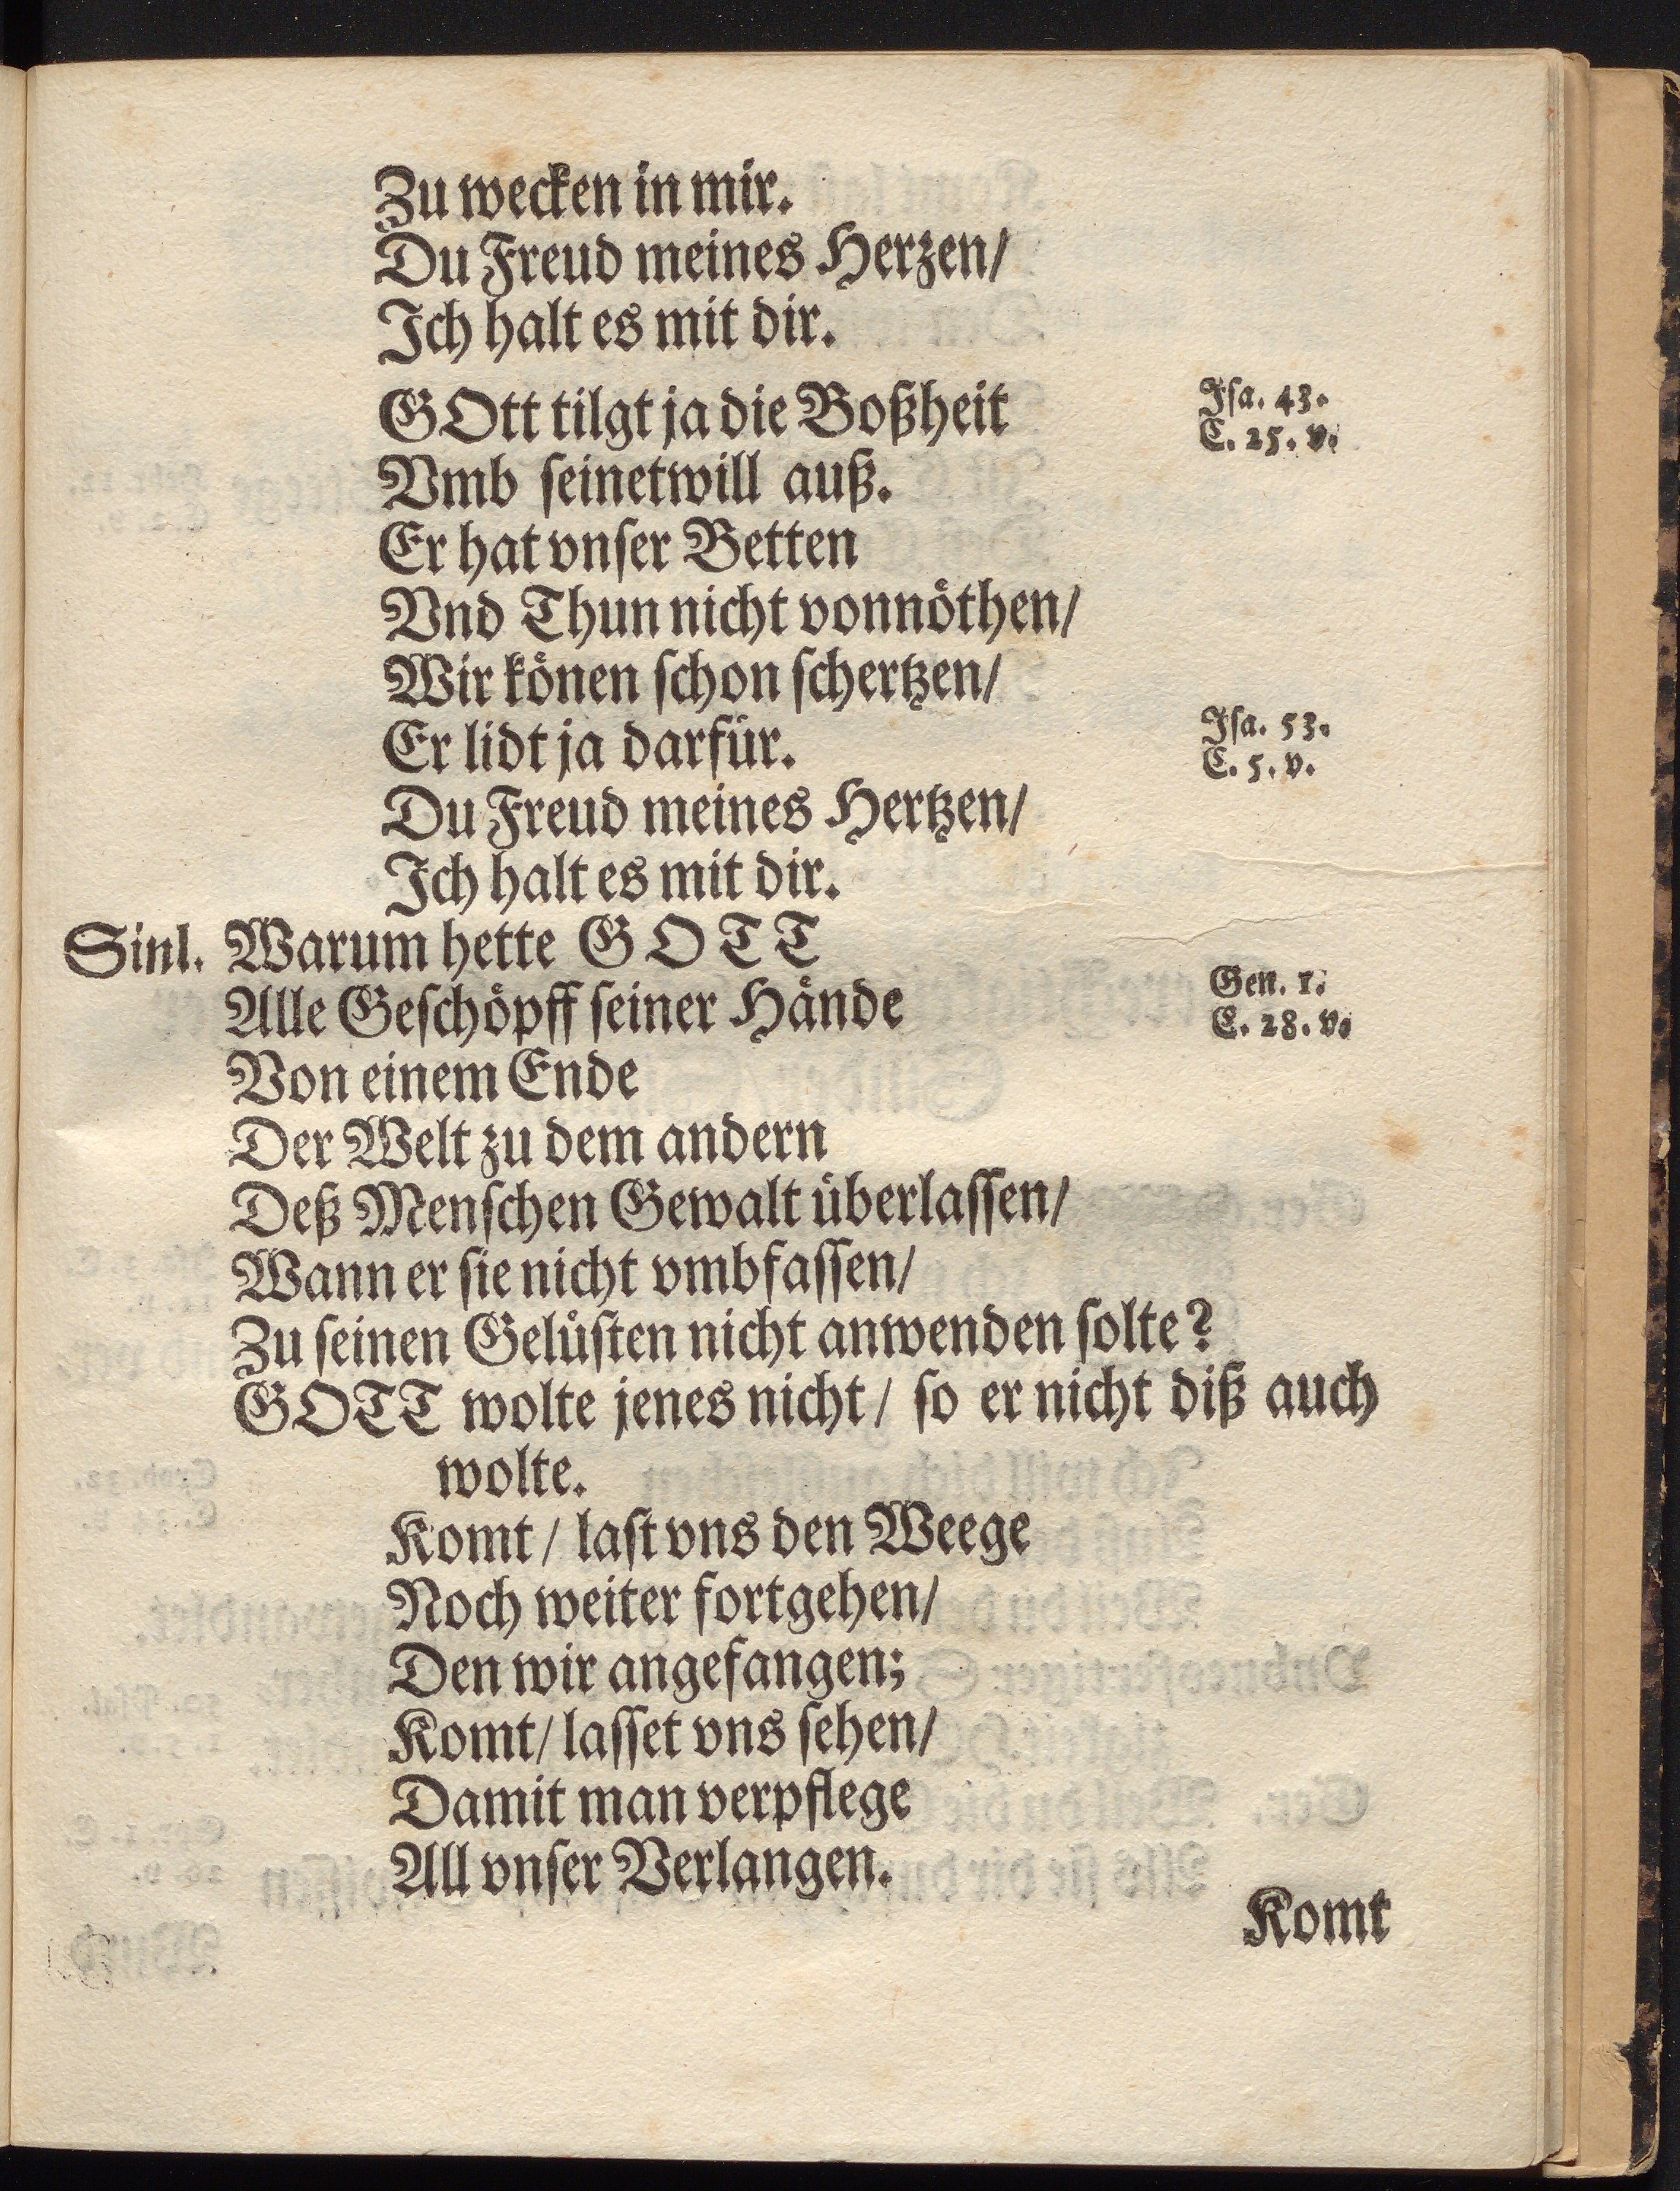 Zu wecken in mir.
Du Freud meines Herzen/
Ich halt es mit dir.
GOtt tilgt ja die Boßheit
Isa. 43.
C. 25. v.
Vmb seinetwill auß.
Er hat vnser Betten
Vnd Thun nicht vonnöthen/
Wir könen schon schertzen/
Er lidt ja darfür.
Isa. 53.
C. 5. v.
Du Freud meines Hertzen/
Ich halt es mit dir.
Sinl. Warum hette GOTT
Alle Geschöpff seiner Hände
Gen. 1.
C. 28. v.
Von einem Ende
Der Welt zu dem andern
Deß Menschen Gewalt überlassen/
Wann er sie nicht vmbfassen/
Zu seinen Gelüsten nicht anwenden solte?
GOTT wolte jenes nicht/ so er nicht diß auch
wolte.
Komt/ last vns den Weege
Noch weiter fortgehen/
Den wir angefangen;
Komt/ lasset vns sehen/
Damit man verpflege
All vnser Verlangen.
Komt